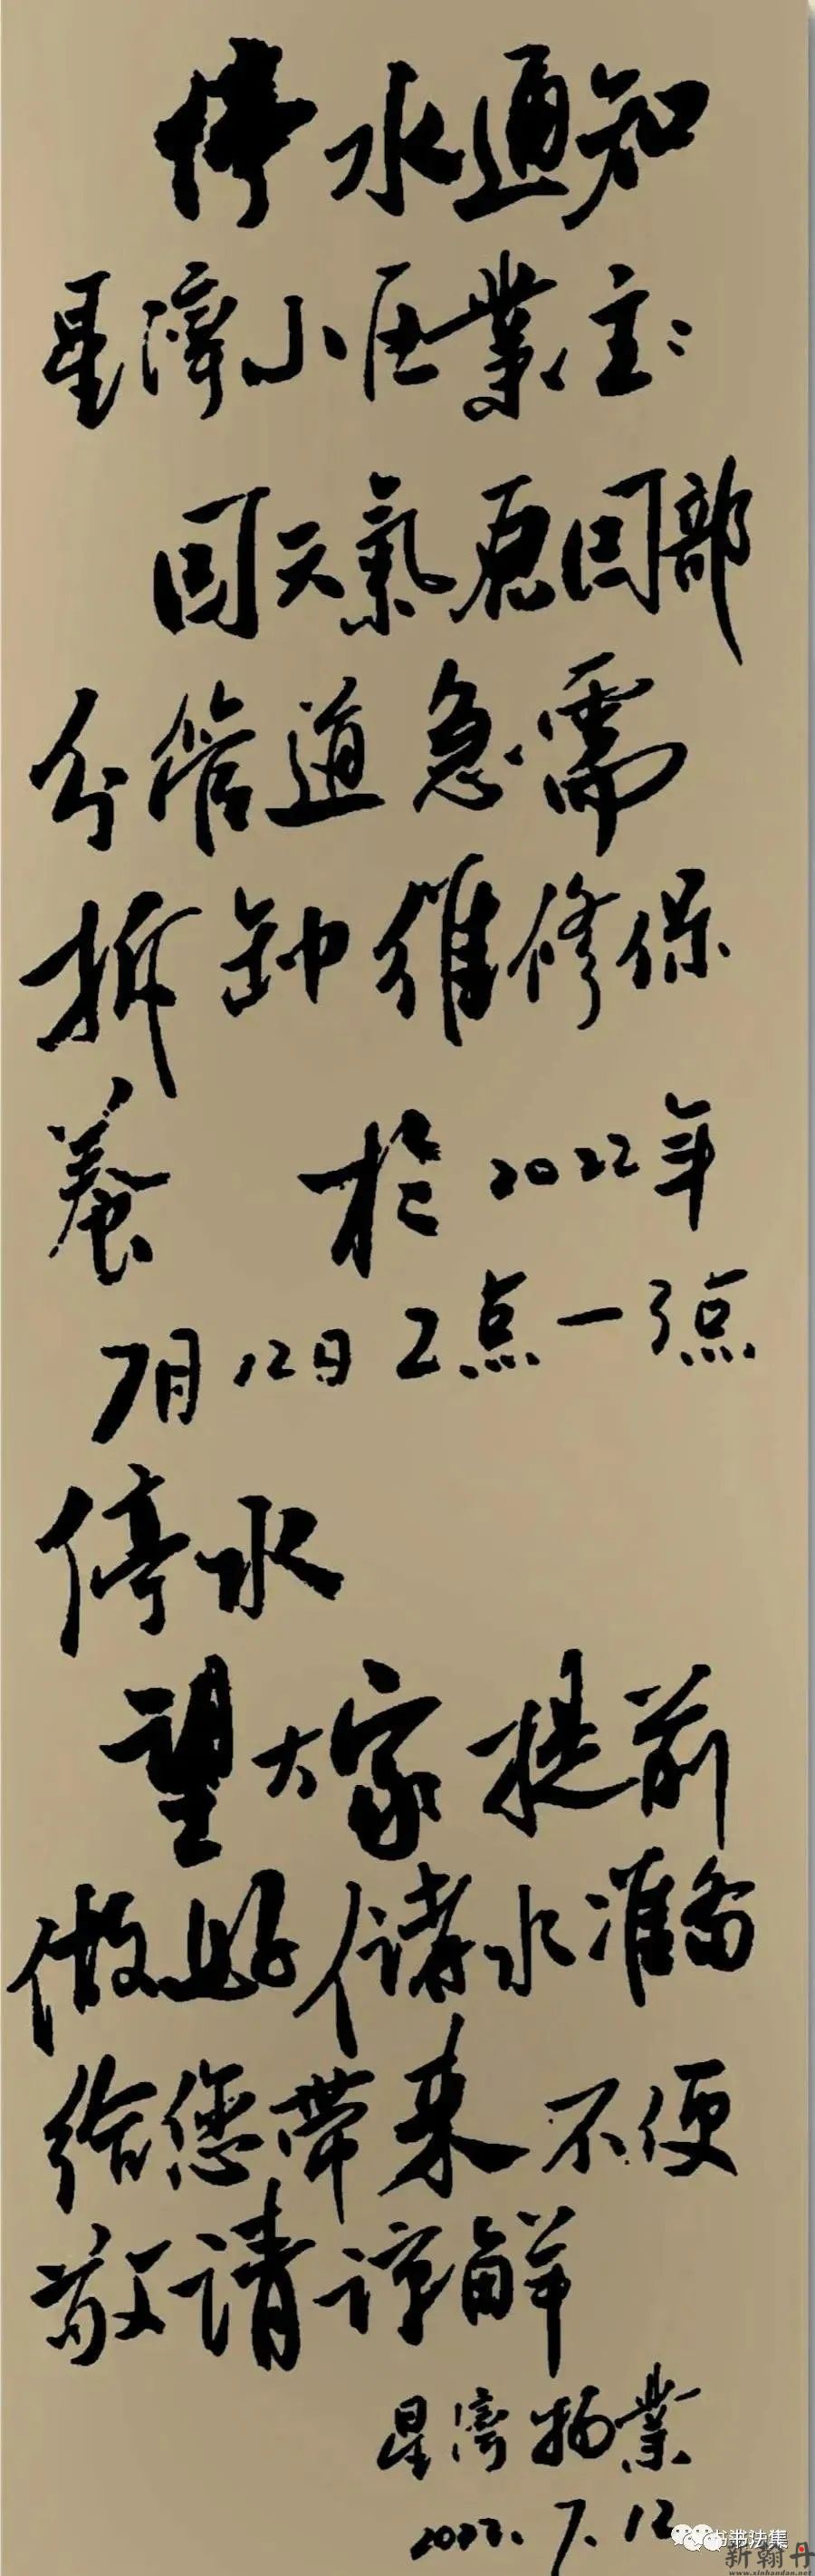 停水通知
星濟小区業主：
因天氣原因部
分管道急需
拆卸維修保
養 於2022年
7月12日2点一3点
停水
望大家提前
做好储水准备
给您帶来不便
敬请谅解
星濟物業
2022.7.12
书法集
新翰丹
www.xinhandan.net